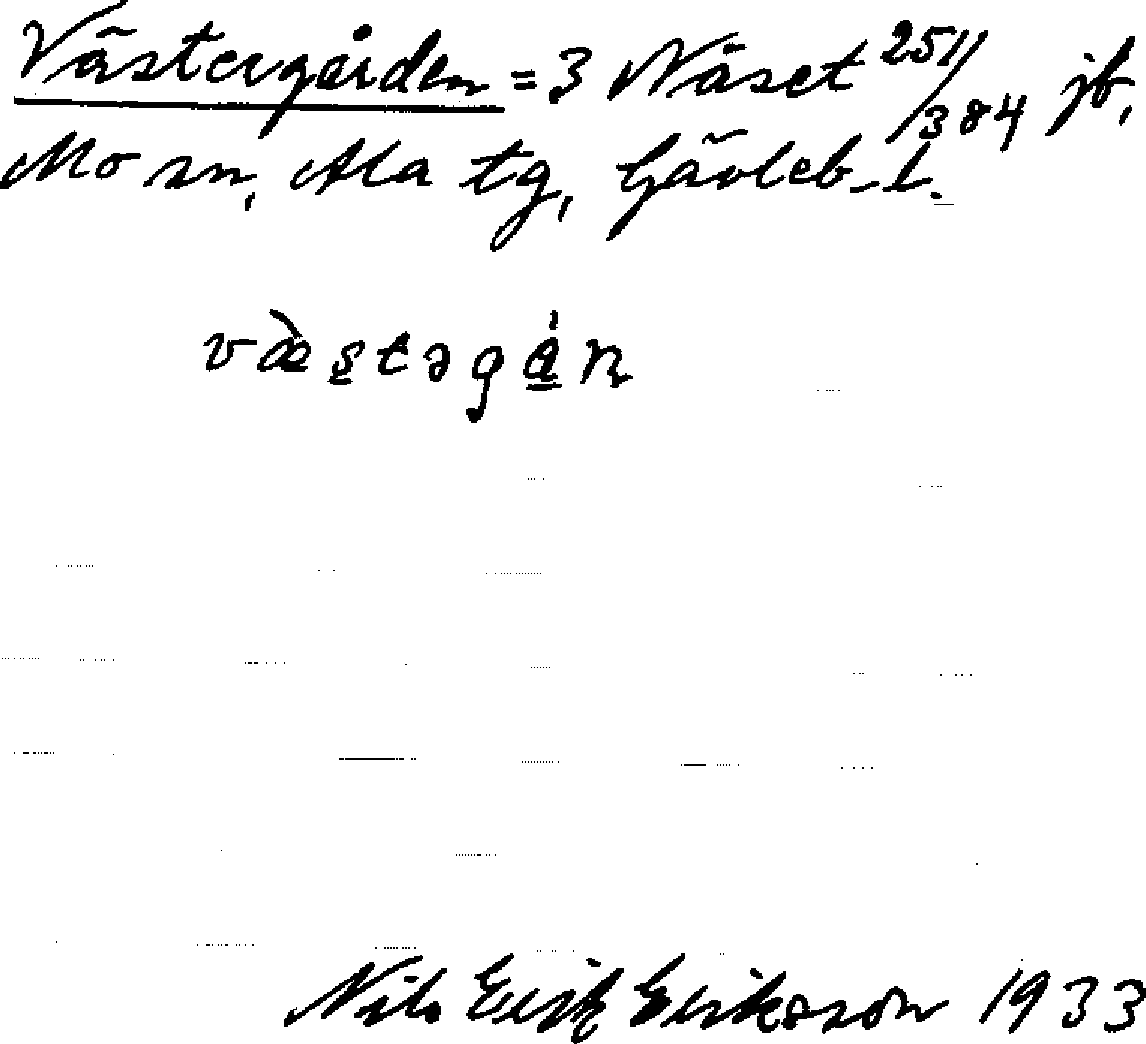 Västergården = 3 Näset 251/384 jb,
Mo sn, Ala tg, Gävleb. l.
væstəgán
Nils Erik Eriksson 1933